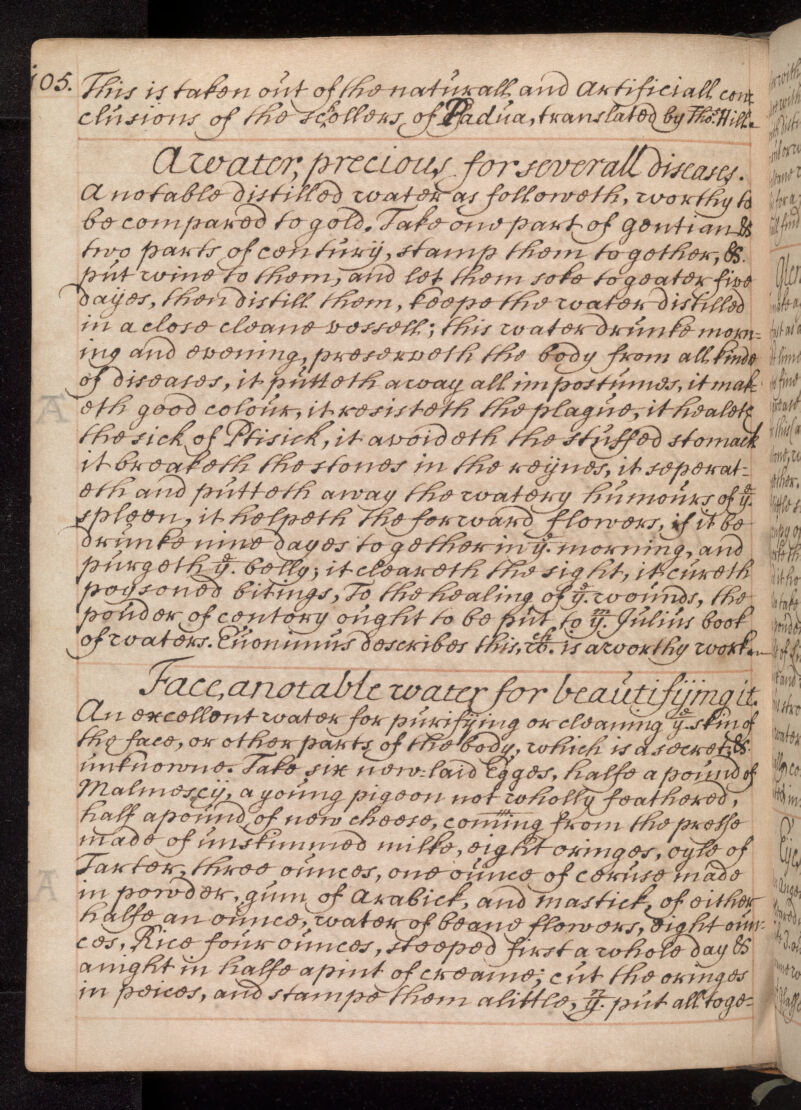 105.
This is taken out of the naturall and artificiall con=
clusions of the scollers of Padua, translated by Thos: Hill.
A water, precious for severall diseases.
A notable distilled water as followeth, worthy to
be compared to gold. Take one part of gentian &
two parts of century, stamp them together, &
put wine to them, and let them soke togeater five
dayes, then distill them, keepe the water distilled
in a close cleane vessell; this water drunke morn=
ing and evening, preserveth the body from all kinde
of diseases, it putteth away all impostumes, it mak=
eth good colour, it resisteth the plague, it healeth
the sick of Ptisick, it avoideth the stuffed stomack
it breaketh the stones in the reynes, it seperat=
eth and putteth away the watery humours of ye
spleen, it helpeth the forward flowers, if it be
drunke nine dayes together in ye morning, and
purgeth ye belly; it cleareth the sight, it cureth
poysoned bitings, To the healing of ye wounds, the
pouder of centory ought to be put to ym. Julius book
of waters. Euonimus describes this, wch is a worthy work
Face, a notable water for beautifijng it.
An excellent water for purifijing or cleaning ye skin of
the face, or other parts of the body, which is a secret, &
unknowne. Take six new-laid Egges, halfe a pound of
Malmesey, a young pigeon not wholly feathered,
half a pound of new cheese, coming from the presse
made of unskimmed milke, eight oringes, oyle of
Tarter three ounces, one ounce of ceruse made
in powder, gum of Arabick, and mastick, of either
halfe an ounce, water of beane flowers, eight oun=
ces, Rice four ounces, steeped first a whole day &
a night in halfe a pint of creame; cut the oringes
in peices, and stampe them a little, yn put all toge=